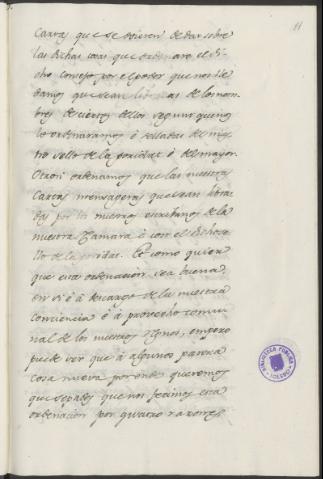 11
Cartas que se ovieren de dar sobre
las dichas cosas que ordenaro el di-
cho consejo por el poder que nos le
damos que sean libradas de los nom-
bres de ciertos dellos segunt que nos
lo ordenaramos é selladas del nues
tro sello de la poridat ó del mayor.
Otrosi ordenamos que las nuestras
Cartas mensageras que sean libra
das por los nuestros escribanos de la
nuestra Camara é con el dicho se
llo de la poridat. Et como quier
que esta ordenacion sea buena,
en si é á descargo de la nuestra
conciencia é á provecho comu-
nal de los nuestros Regnos, empero
puede ser que á algunos paresca
cosa nueva por ende queremos
que sepades que nos fecimos esta
ordenacion por quatro razones
BIBLIOTECA PUBLICA
TOLEDO